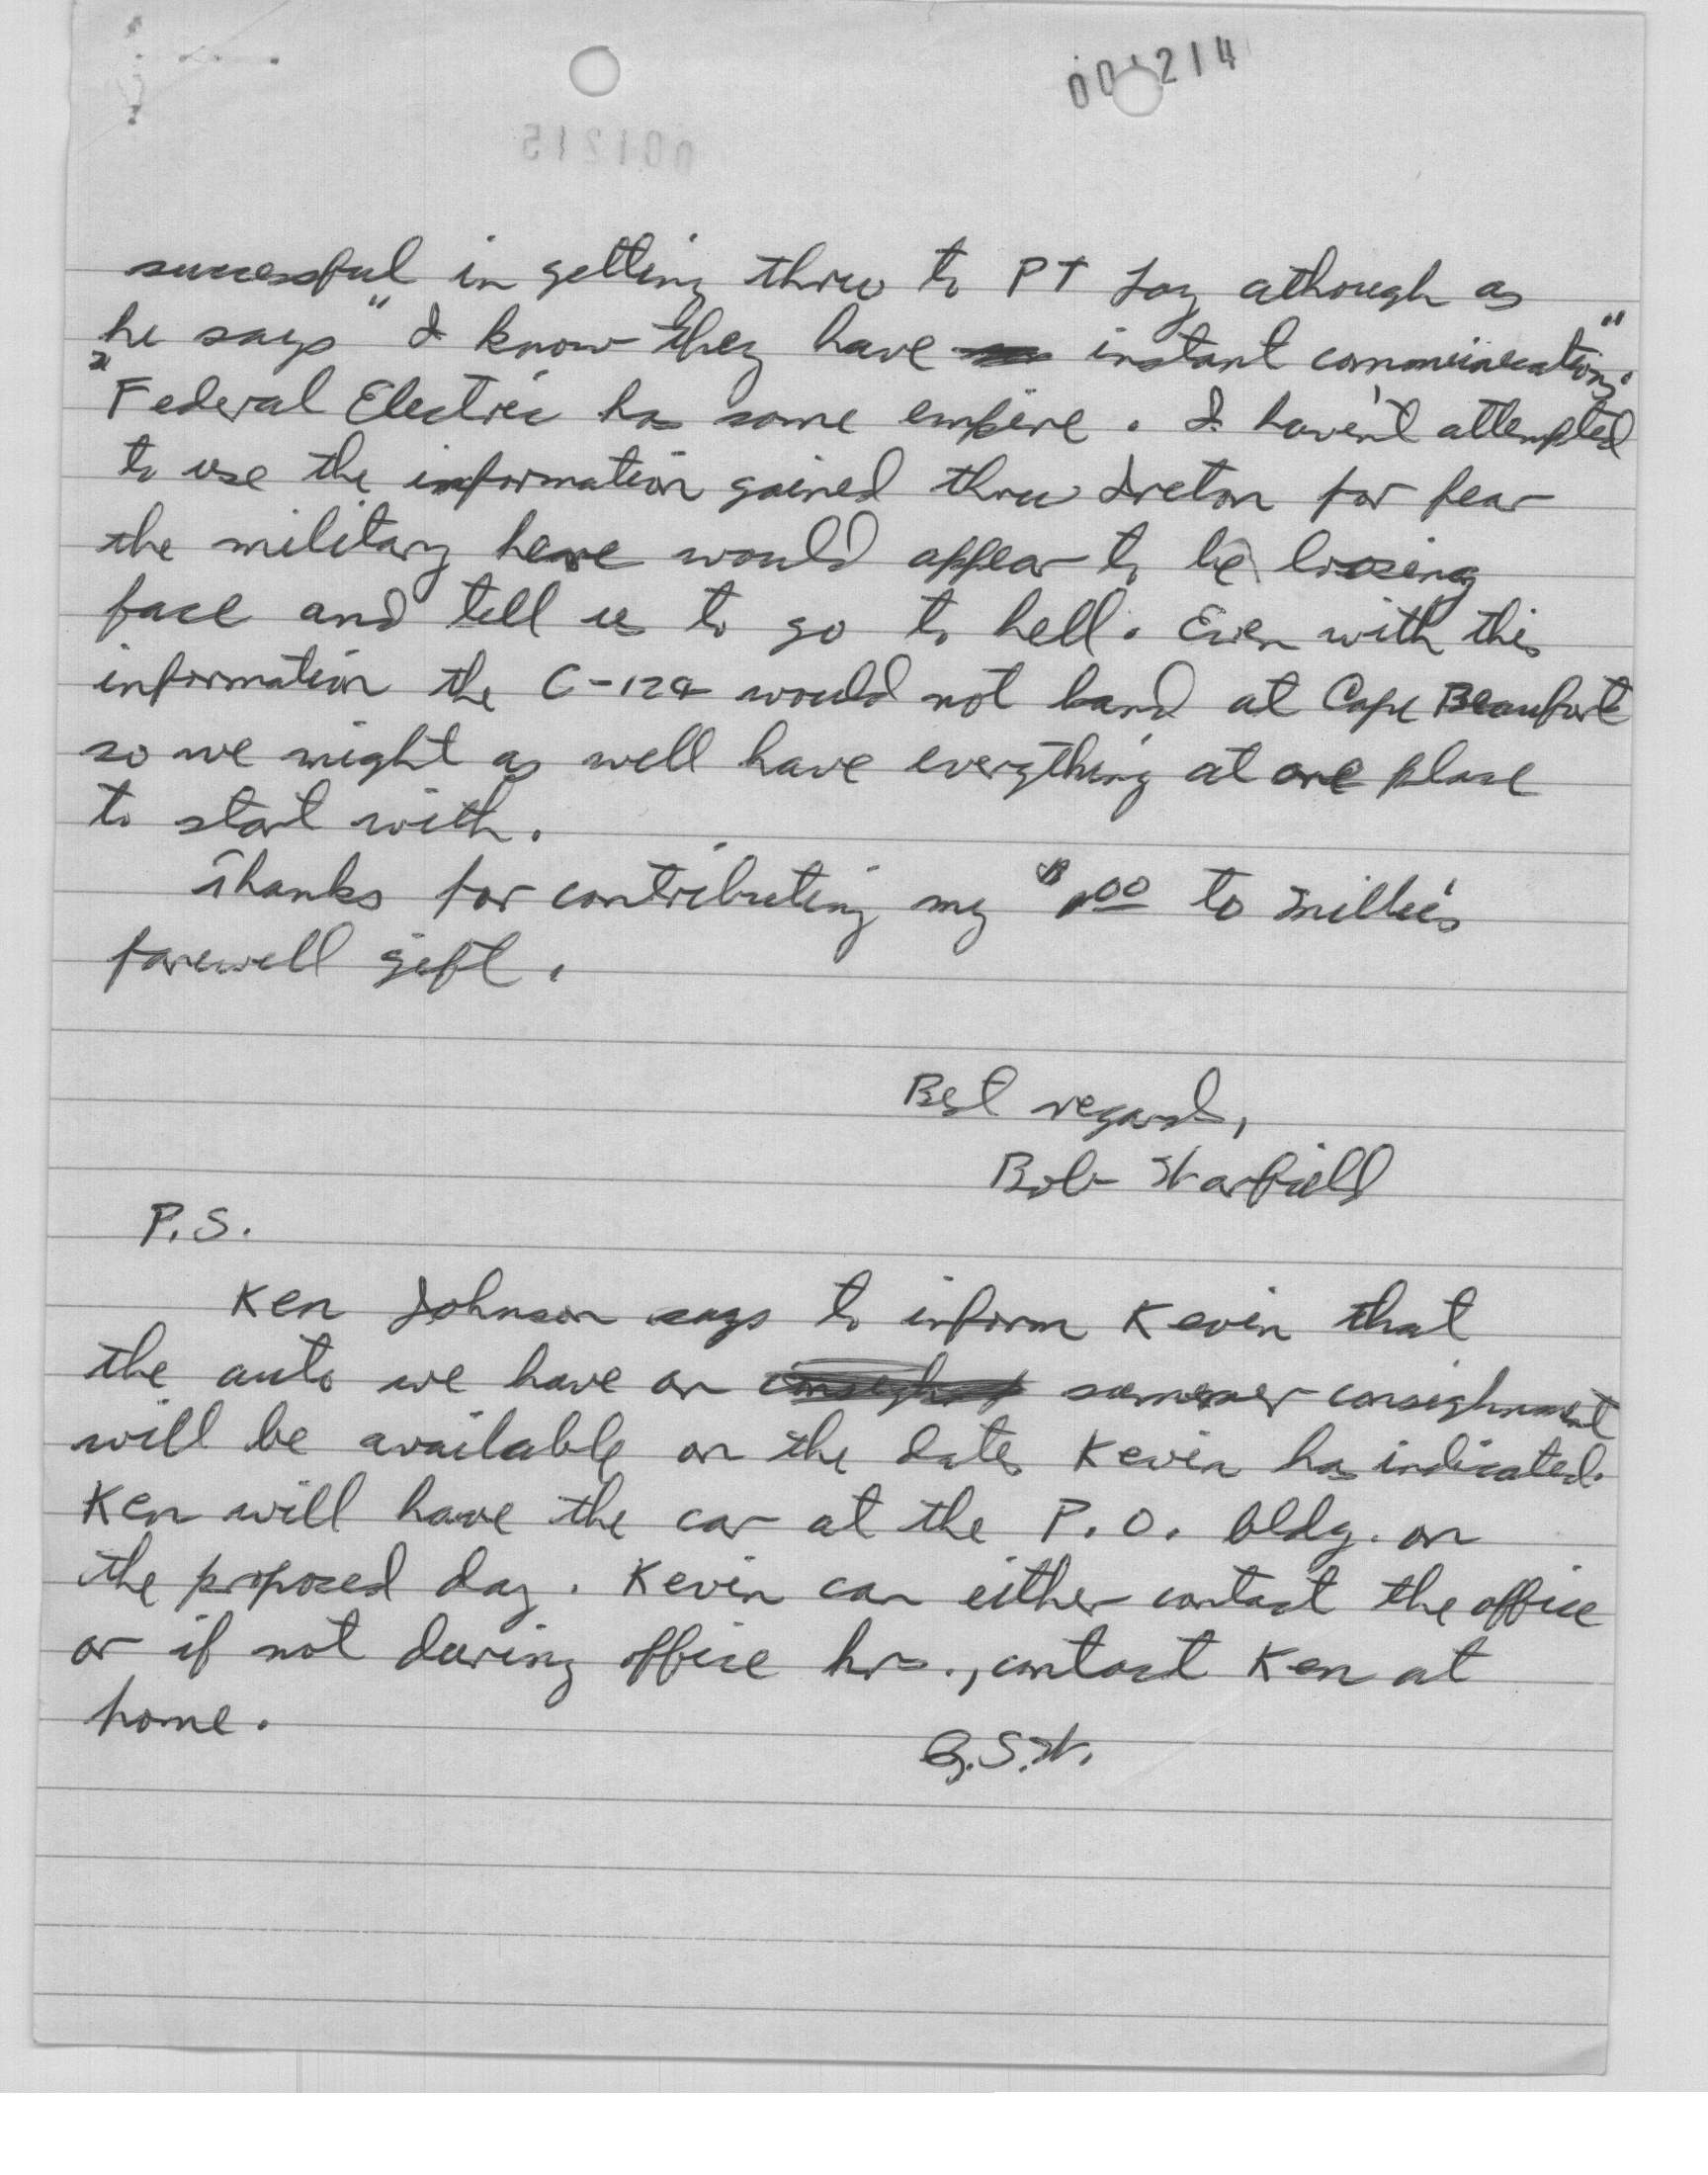 001214
001215
successful in getting thru to PT Lay athough as
he says "I know they have instant communications"
"Federal Electric has some empire. I haven't attempted
to use the information gained thru Ireton for fear
the military here would appear to be loosing
face and tell us to go to hell. Even with this
information the C-124 would not land at Cape Beaufort
so we might as well have everything at one place
to start with.
Thanks for contributing my to Millie's
farewell gift.
Best regards,
Bob Warfield
P.S.
Ken Johnson says to inform Kevin that
the auto we have on summer consignment
will be available on the dates Kevin has indicated.
Ken will have the car at the P.O. bldg. on
the proposed day. Kevin can either contact the office
or if not during office hrs., contact Ken at
home.
R.S.W.